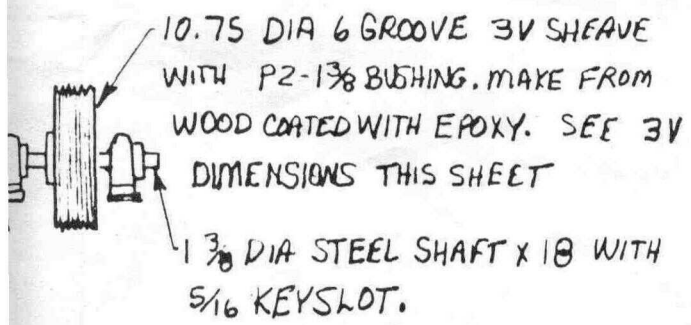 10.75 DIA 6 GROOVE 3V SHEAVE
WITH P2-1 3/8 BUSHING. MAKE FROM
WOOD COATED WITH EPOXY. SEE 3V
DIMENSIONS THIS SHEET
1 3/8 DIA STEEL SHAFT X 18 WITH
5/16 KEYSLOT.